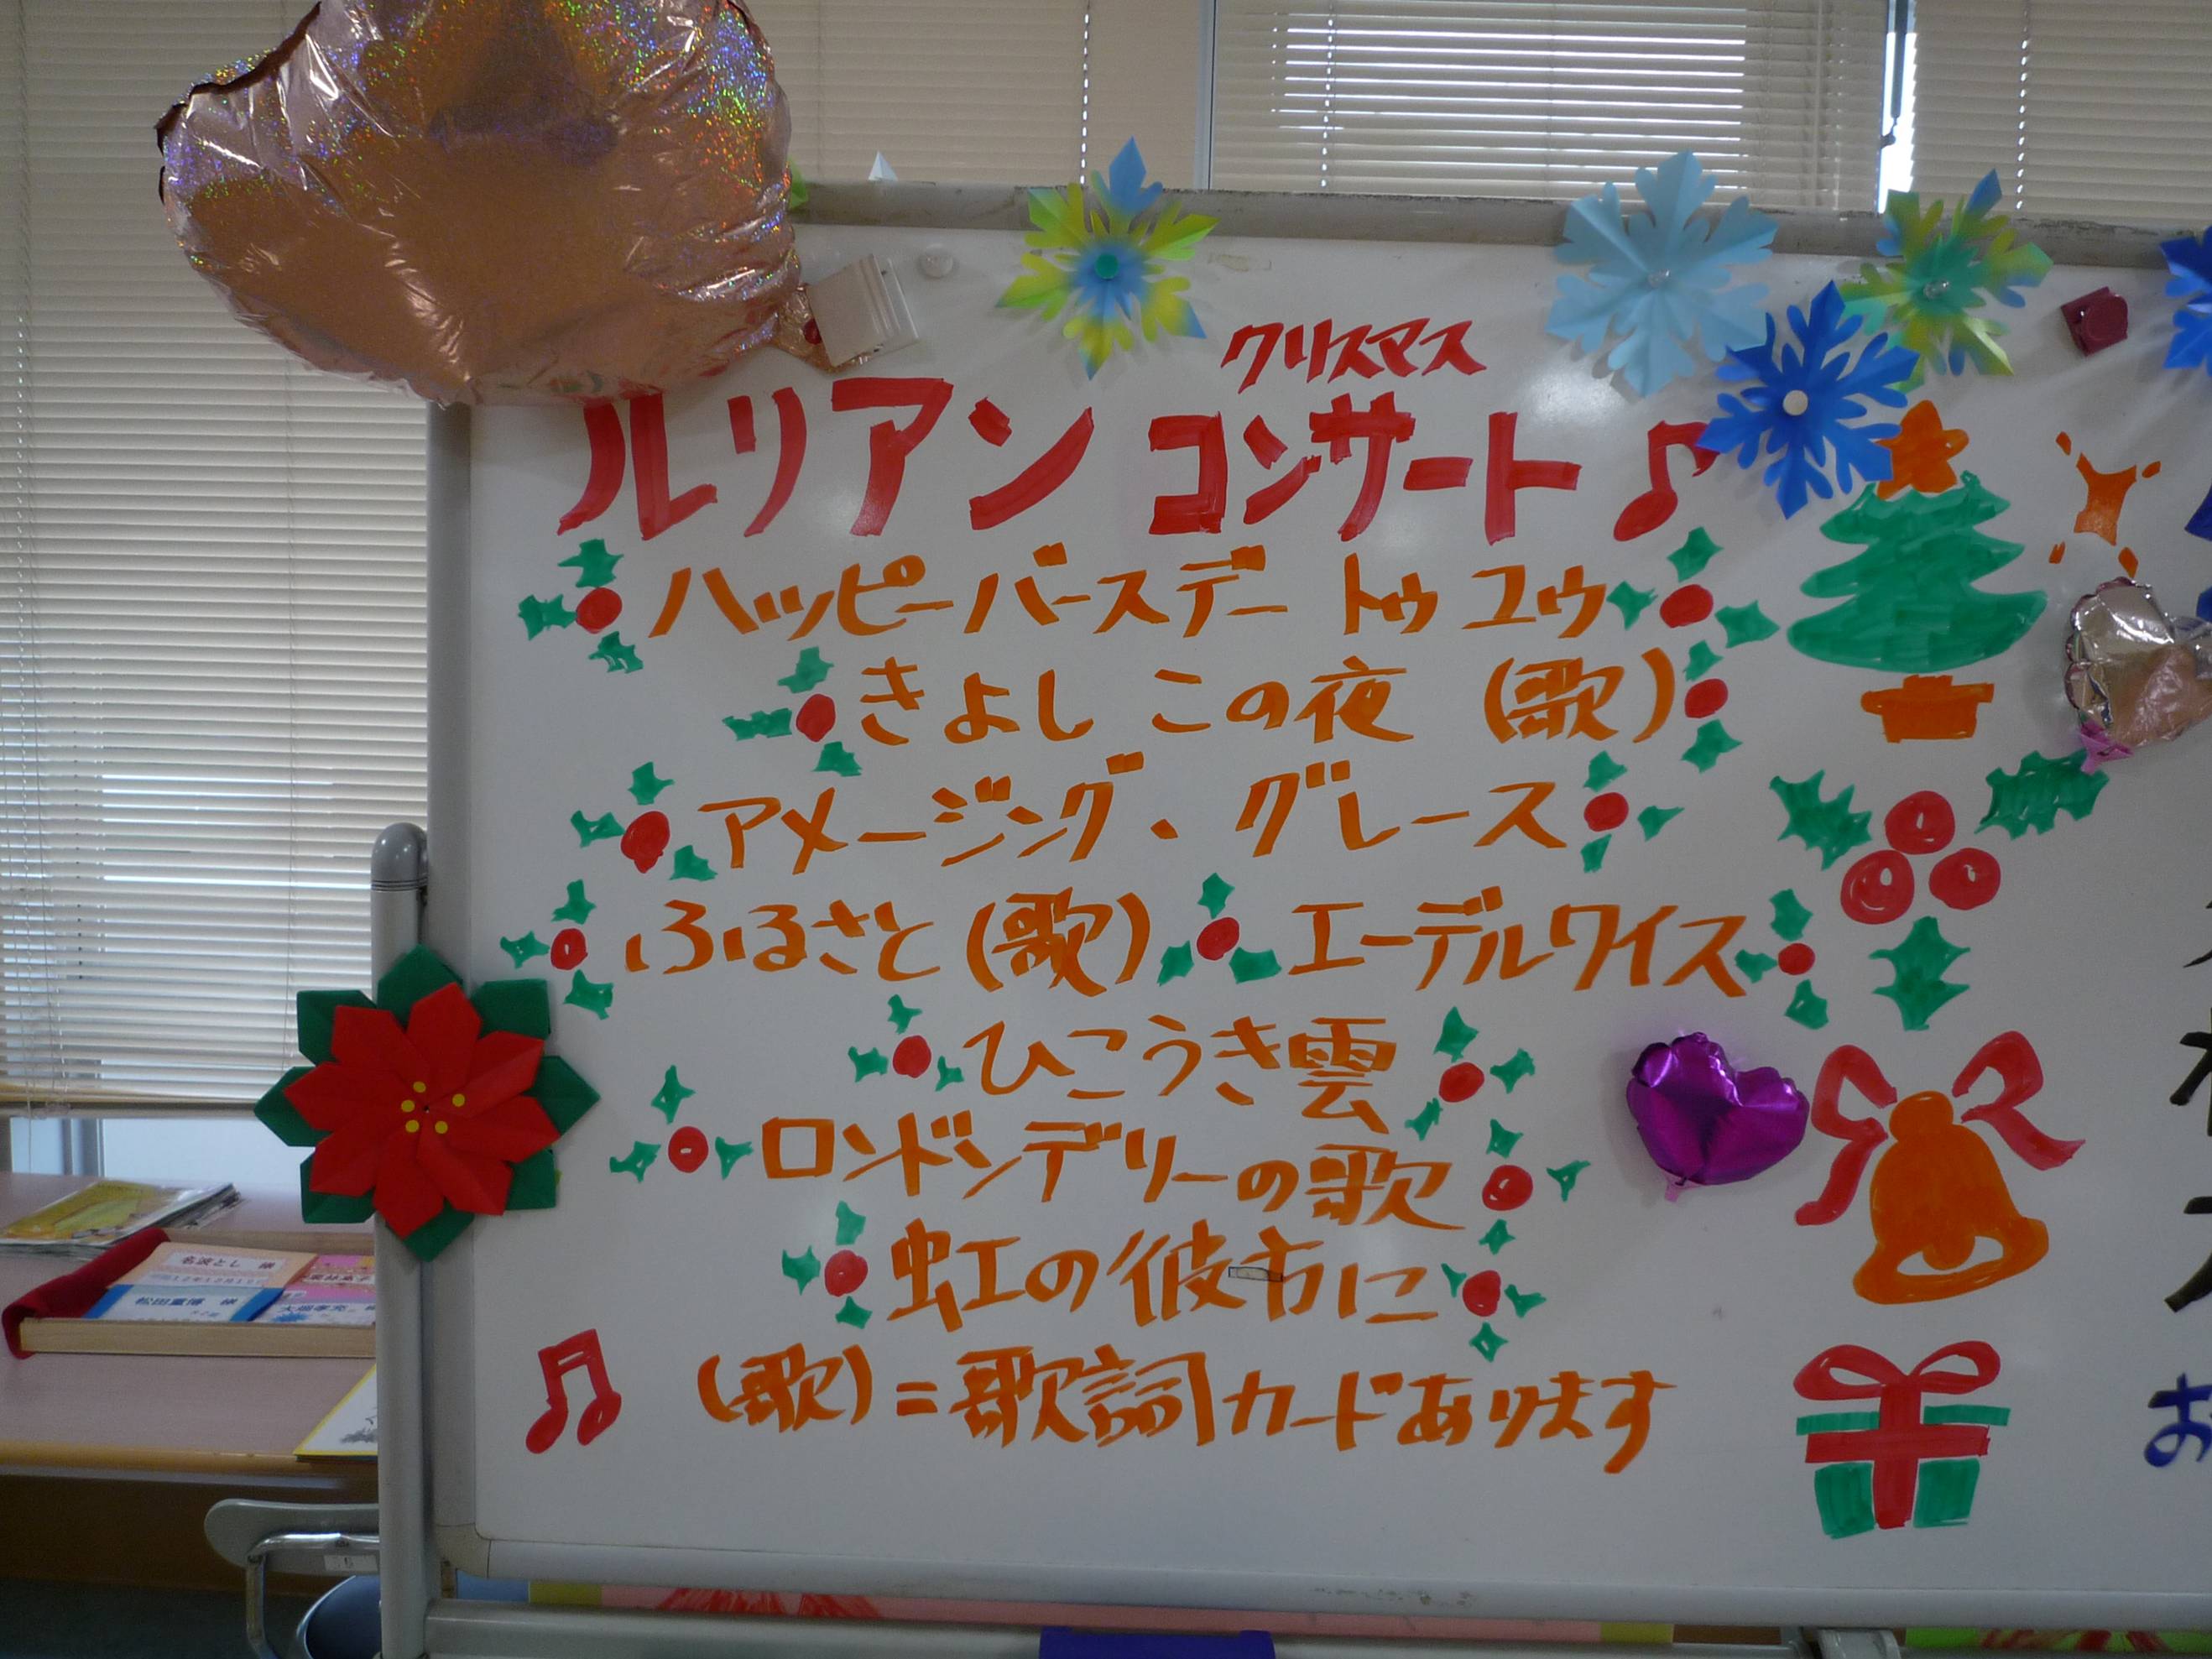 クリスマス
ルリアン コンサート♪
ハッピーバースデー トゥ ユゥ
きよし この夜 (歌)
アメージング・グレース
ふるさと(歌) エーデルワイス
ひこうき雲
ロンドンデリーの歌
虹の彼方に
(歌)=歌詞カードあります
お
名波とし 様
松田重博 様